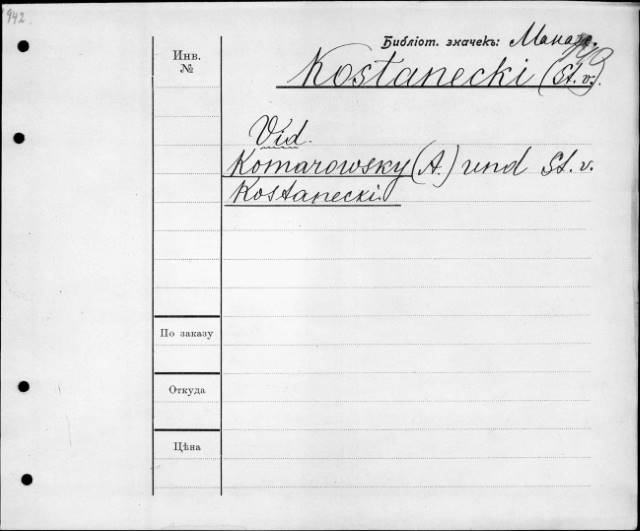 942
Библіот. значекъ:
Инв.
№
Kostanecki (St. v.).
Vid.
Komarowsky (A.) und St. v.
Kostanecki.
По заказу
Откуда
Цѣна